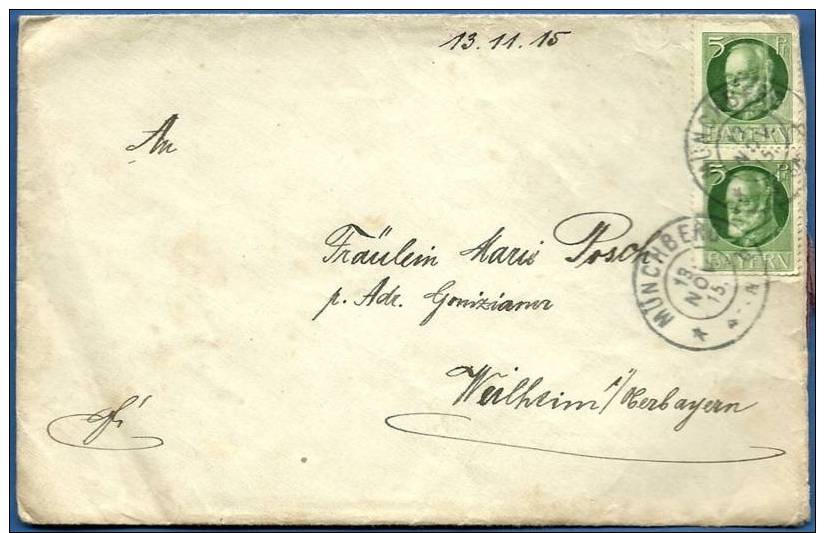 13.11.15
5 Pf
BAYERN
5 Pf
BAYERN
MÜNCHBERG
13.
NO
15.
An
Fräulein Marie Posch
p. Adr.
Weilheim i/Oberbayern